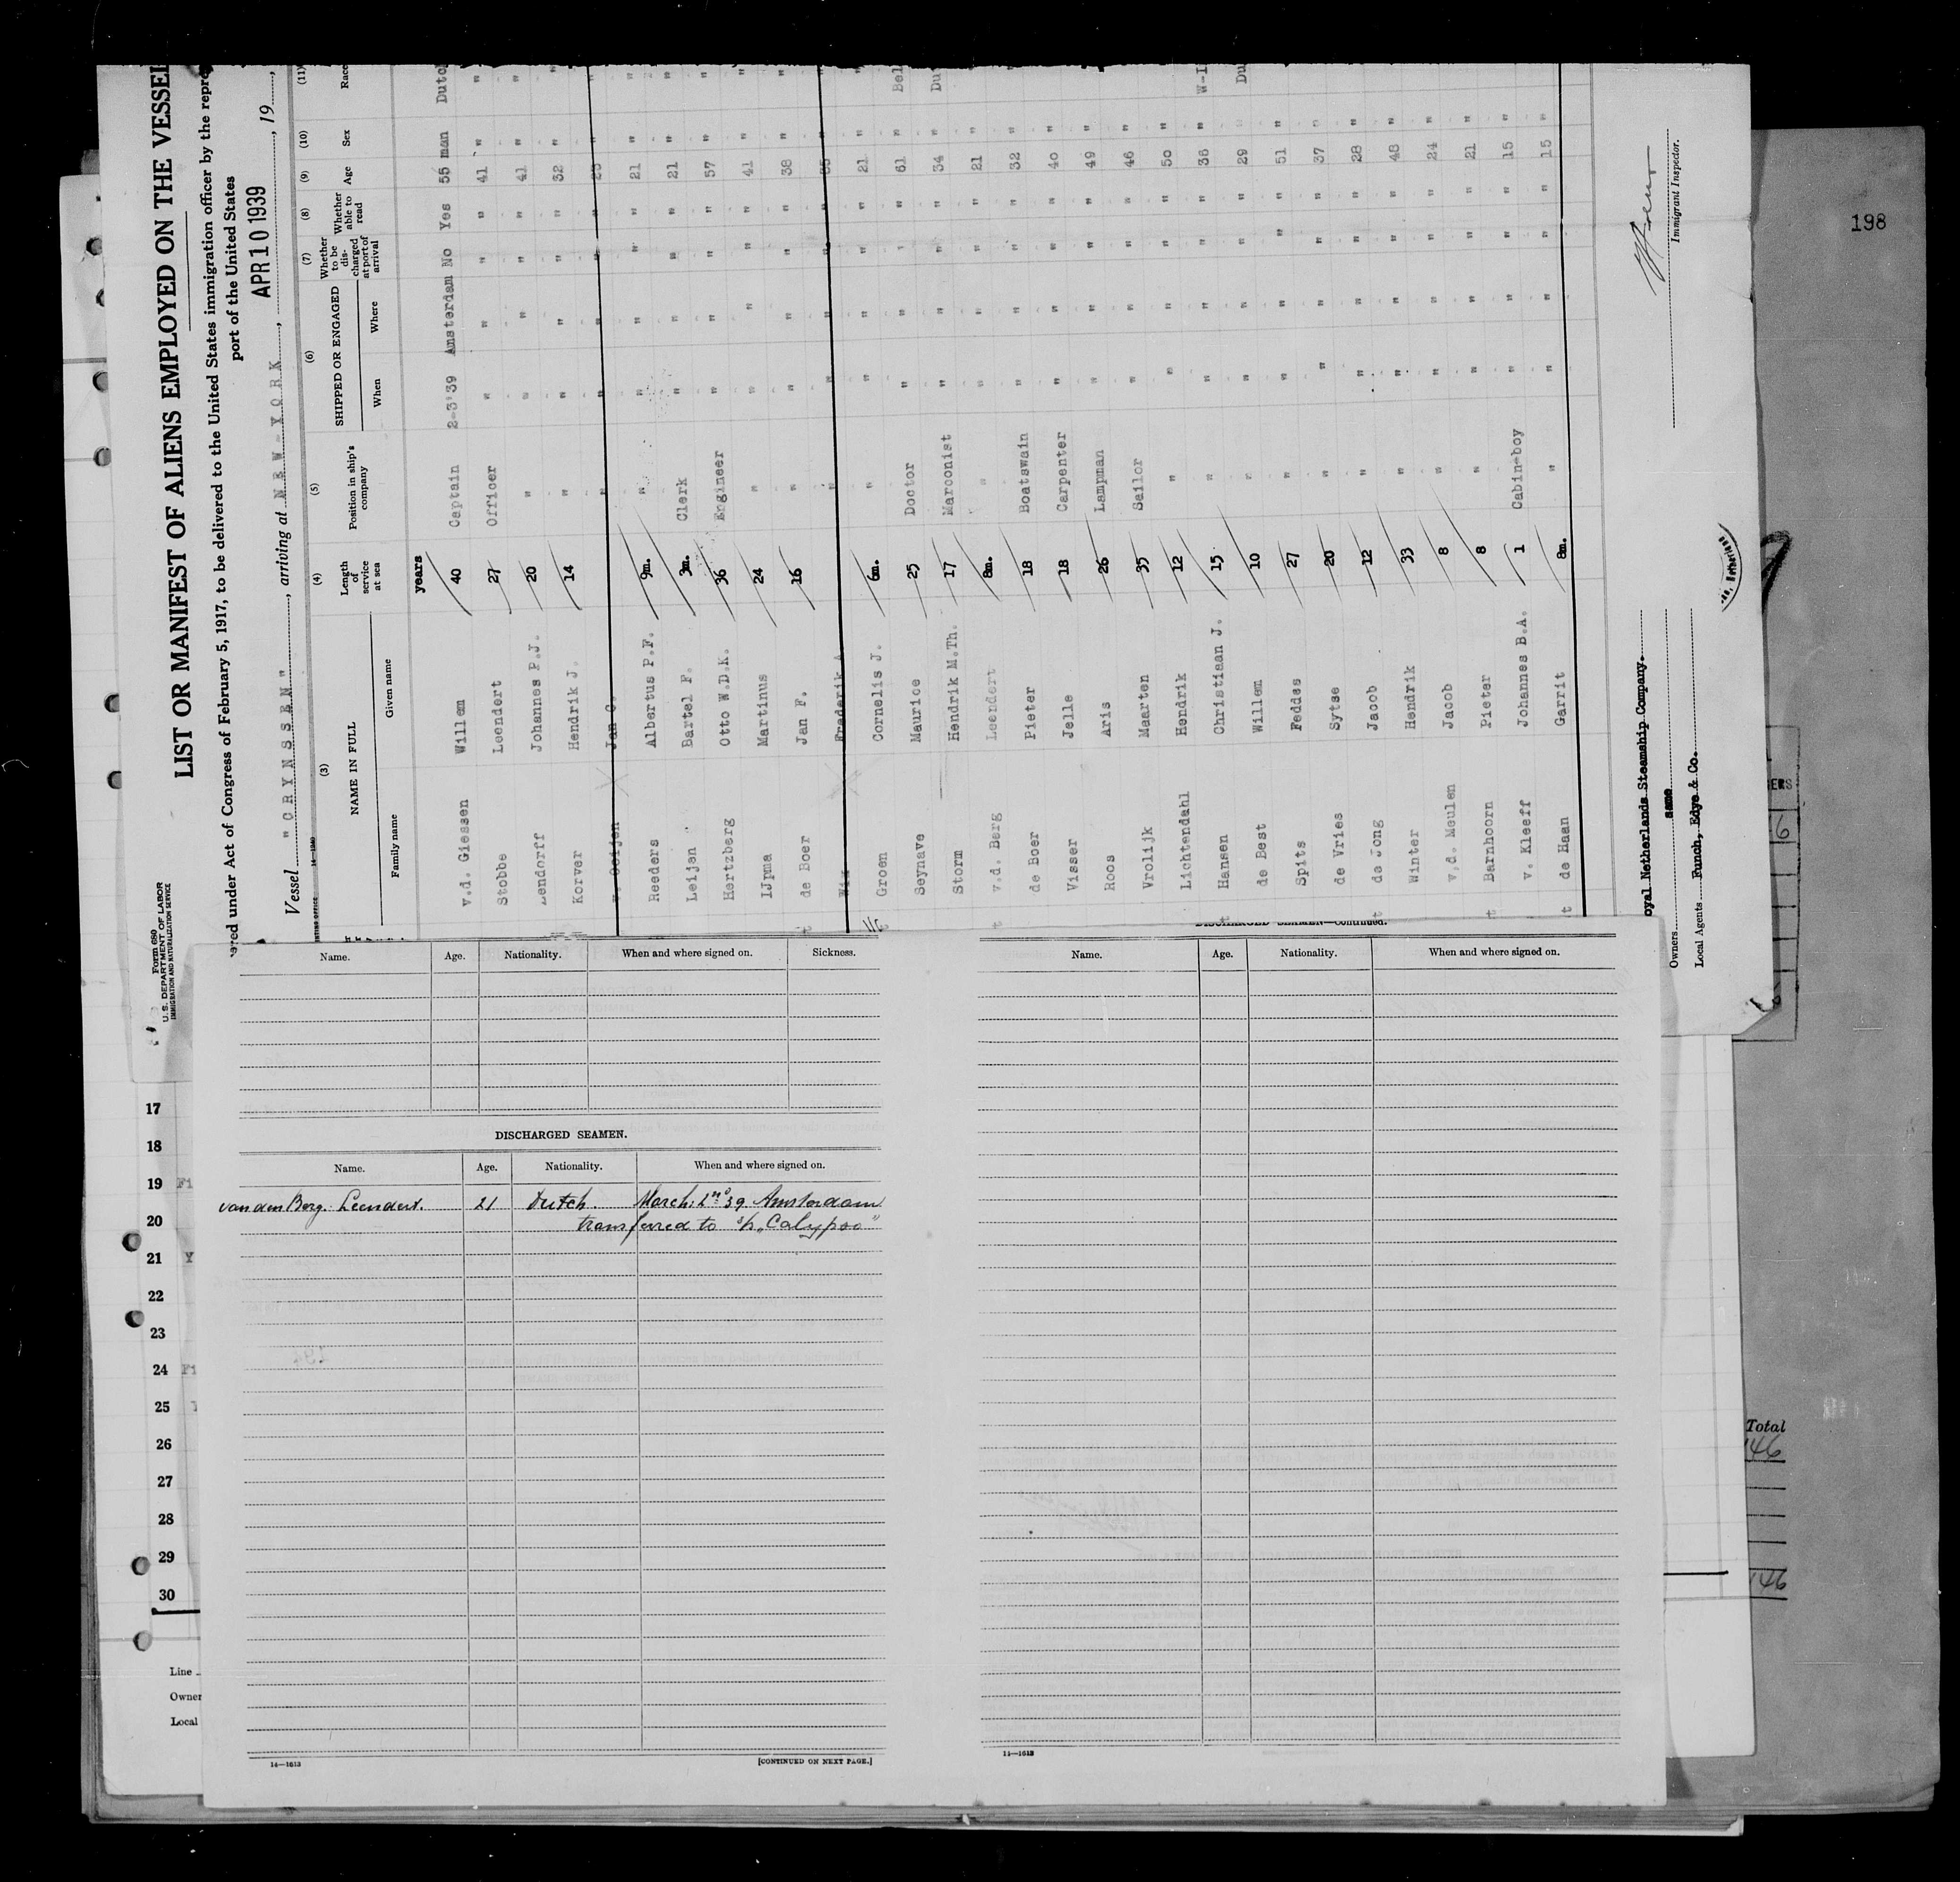 198
Form 680
U. S. DEPARTMENT OF LABOR
IMMIGRATION AND NATURALIZATION SERVICE
LIST OR MANIFEST OF ALIENS EMPLOYED ON THE VESSEL
under Act of Congress of February 5, 1917, to be delivered to the United States immigration officer by the
port of the United States
Vessel "CRYNSSEN", arriving at NEW-YORK, APR 10 1939, 19
(3) (4) (5) (6) (7) (8) (9) (10) (11)
NAME IN FULL Length of service at sea Position in ship's company SHIPPED OR ENGAGED Whether to be discharged at port of arrival Whether able to read Age Sex Race
Family name Given name When Where
years
v.d. Giessen Willem 40 Captain 2-3'39 Amsterdam No Yes 55 man Dutch
Stobbe Leendert 27 Officer " " " " 41 " "
Johannes P.J. 20 " " " " " 41 " "
Korver Hendrik J. 14 " " " " " 32 " "
Jan C. " " " " "
Reeders Albertus P.F. 9m. " " " " " 21 " "
Leijen Bartel F. 3m. Clerk " " " " 21 " "
Hertzberg Otto W.D.K. 36 Engineer " " " " 57 " "
IJpma Martinus 24 " " " " " 41 " "
de Boer Jan F. 16 " " " " " 38 " "
Frederik A. " " " " "
Groen Cornelis J. 6m. " " " " " 21 " "
Seynave Maurice 25 Doctor " " " " 61 " Bel
Storm Hendrik M.Th. 17 Marconist " " " " 34 " Du
v.d. Berg Leendert 8m. " " " " " 21 " "
de Boer Pieter 18 Boatswain " " " " 32 " "
Visser Jelle 18 Carpenter " " " " 40 "
Roos Aris 26 Lampman " " " " 49 "
Vrolijk Maarten 35 Sailor " " " " 46 "
Lichtendahl Hendrik 12 " " " " " 50 "
Hansen Christiaan J. 15 " " " " " 36 " W-I
de Best Willem 10 " " " " " 29 " Du
Spits Feddes 27 " " " " " 51 "
de Vries Sytse 20 " " " " " 37 "
de Jong Jacob 12 " " " " " 28 "
Winter Hendrik 33 " " " " " 48 "
v.d. Meulen Jacob 8 " " " " " 24 "
Barnhoorn Pieter 8 " " " " " 21 "
v. Kleeff Johannes B.A. 1 Cabin-boy " " " " 15 "
de Haan Garrit 8m. " " " " " 15 "
oyal Netherlands Steamship Company.
Owners same
Local Agents Funch, Edye & Co.
Immigrant Inspector.
Name. Age. Nationality. When and where signed on. Sickness.
DISCHARGED SEAMEN.
Name. Age. Nationality. When and where signed on.
van den Berg. Leendert. 21 Dutch. March: 2nd 39. Amsterdam
transferred to s/s "Calypso"
14—1613 [CONTINUED ON NEXT PAGE.]
DISCHARGED SEAMEN—Continued.
Name. Age. Nationality. When and where signed on.
14—1613
17
18
19 Fi
20
21 Y
22
23
24 Fi
25
26
27
28
29
30
Line
Owner
Local
6
Total
146
146